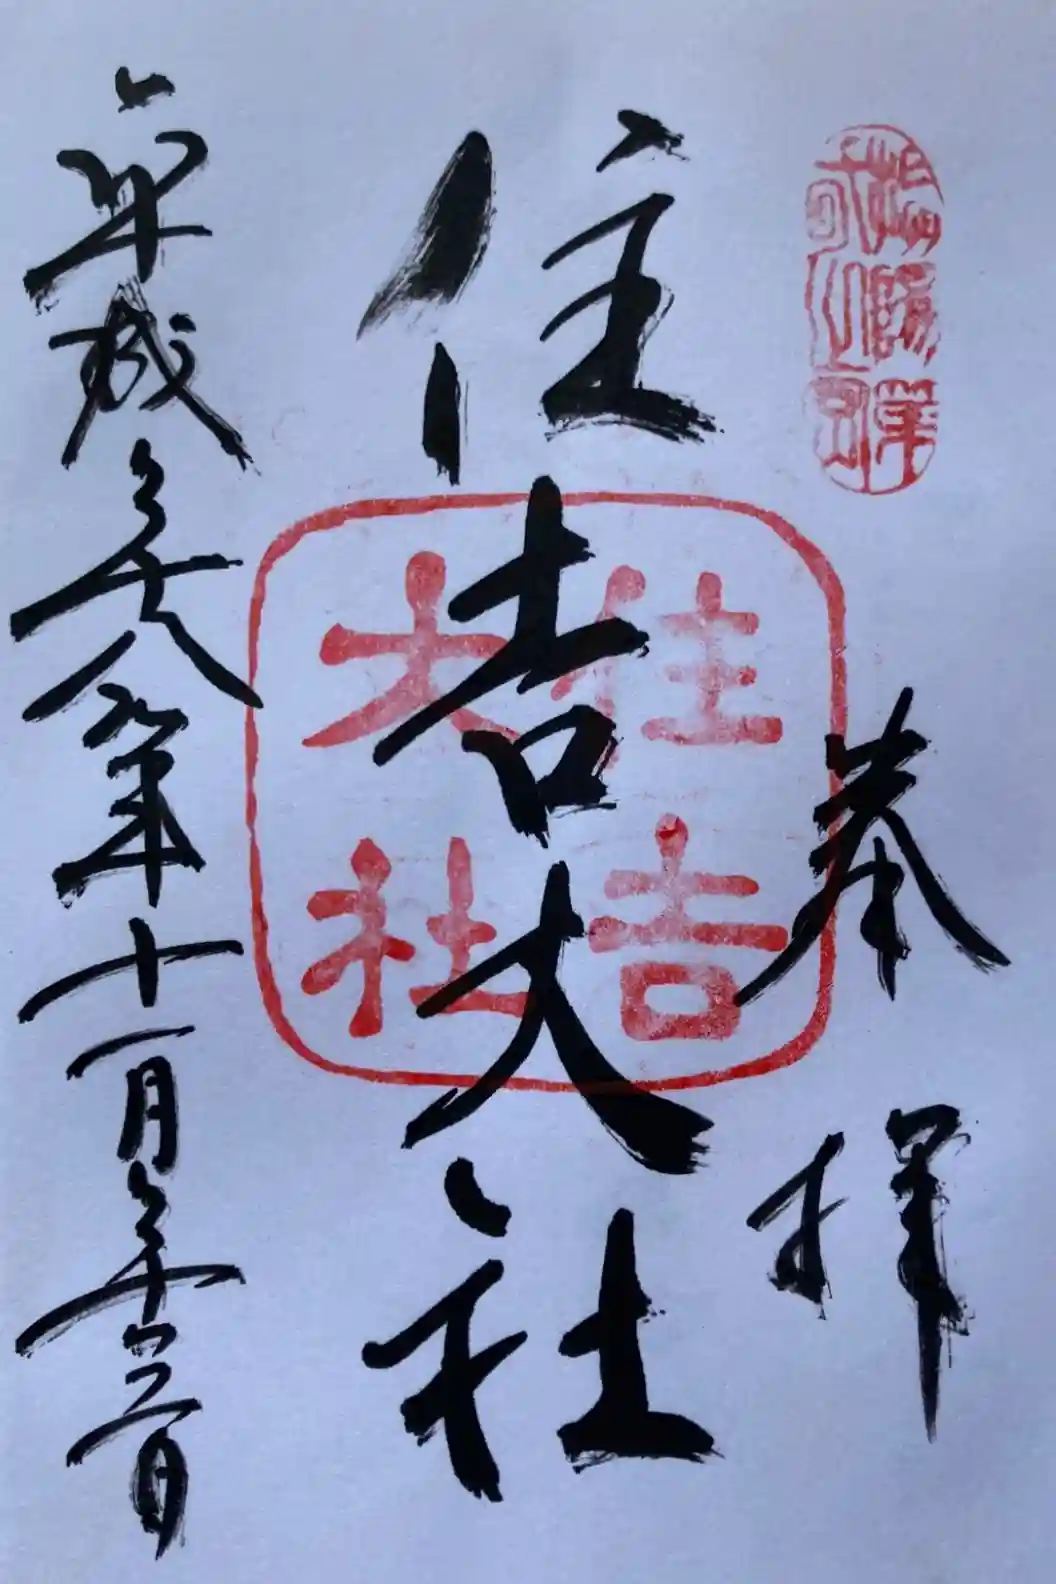 奉拝
住吉大社
住吉
大社
平成二十八年十一月二十日